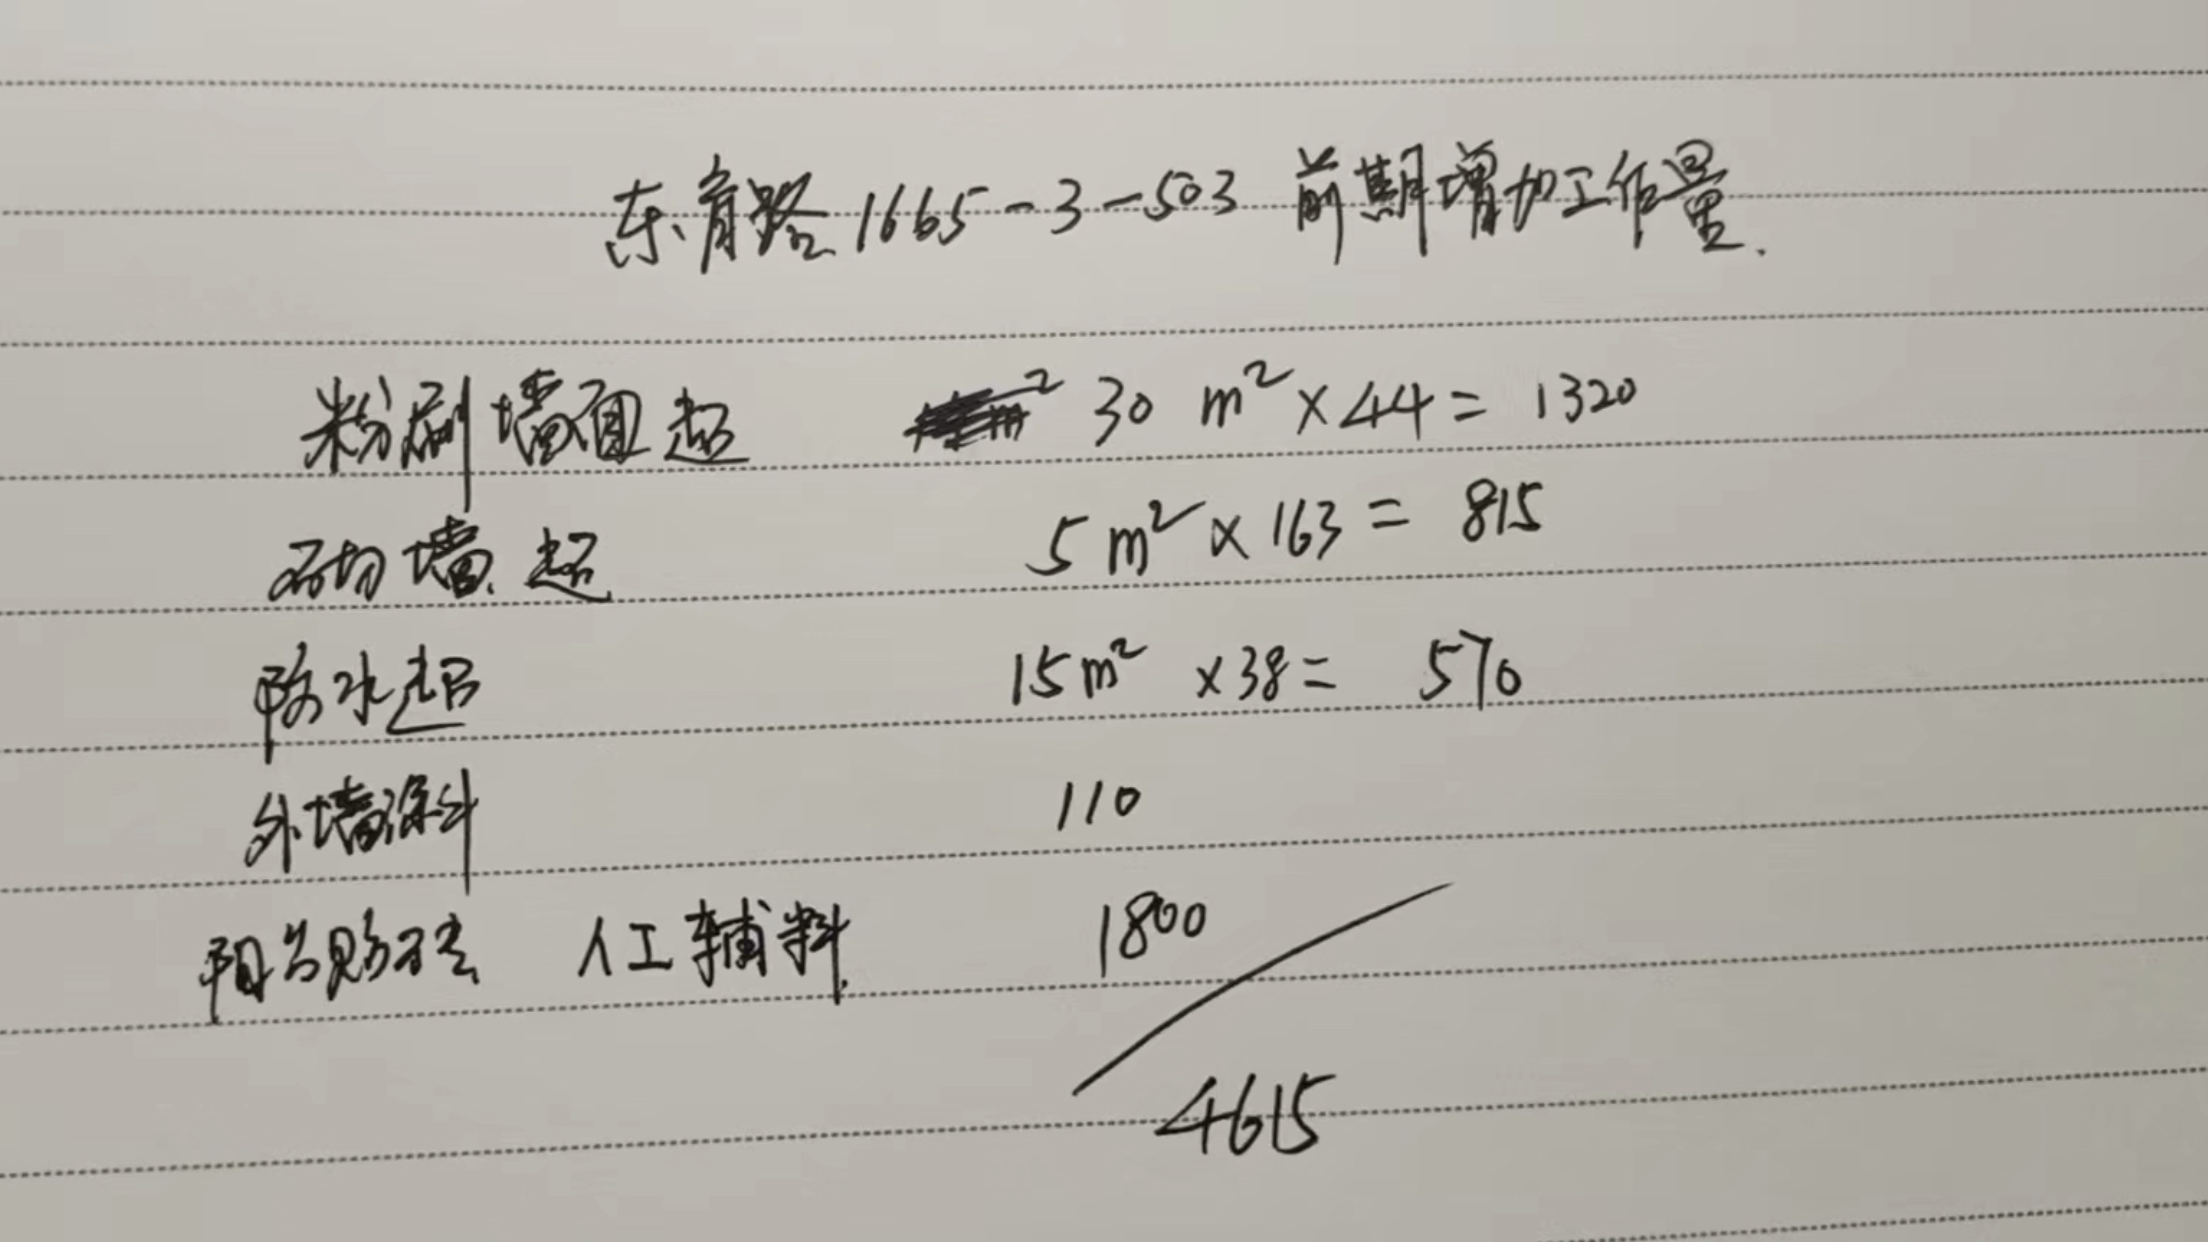 东育路1665-3-503 前期增加工作量.
粉刷墙面超 30 m² × 44 = 1320
砌墙超 5 m² × 163 = 815
防水超 15 m² × 38 = 570
外墙涂料 110
阳台贴砖 人工辅料 1800
4615